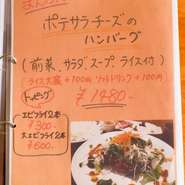 ポテサラチーズの
ハンバーグ
(前菜、サラダ、スープ、ライス付)
(ライス大盛+100円 ソフトドリンク+100円)
¥1480-
トッピング
エビフライ2本
¥300-
大エビフライ2本
¥600-